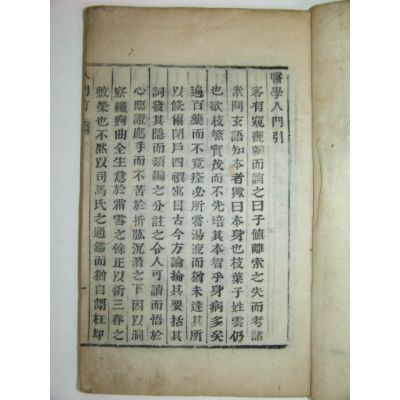 醫學入門引
客有窺甕牖而誚之曰子值離索之失而考諸
素問玄語知本者歟曰本身也枝葉子姓雲仍
也欲枝繁實茂而不先培其本智乎身病多矣
遍百藥而不竟痊必所嘗湯液而猶未達其所
以候爾閉戶四禩寓目古今方論掄其要括其
詞發其隱而類編之分註之令人可讀而悟於
心臨證應手而不苦於折肱沉潛之下因以洞
察纖痾曲全生意於霜雪之餘正以祈三春之
敷榮也不然以司馬氏之通鑑而猶自謂枉却